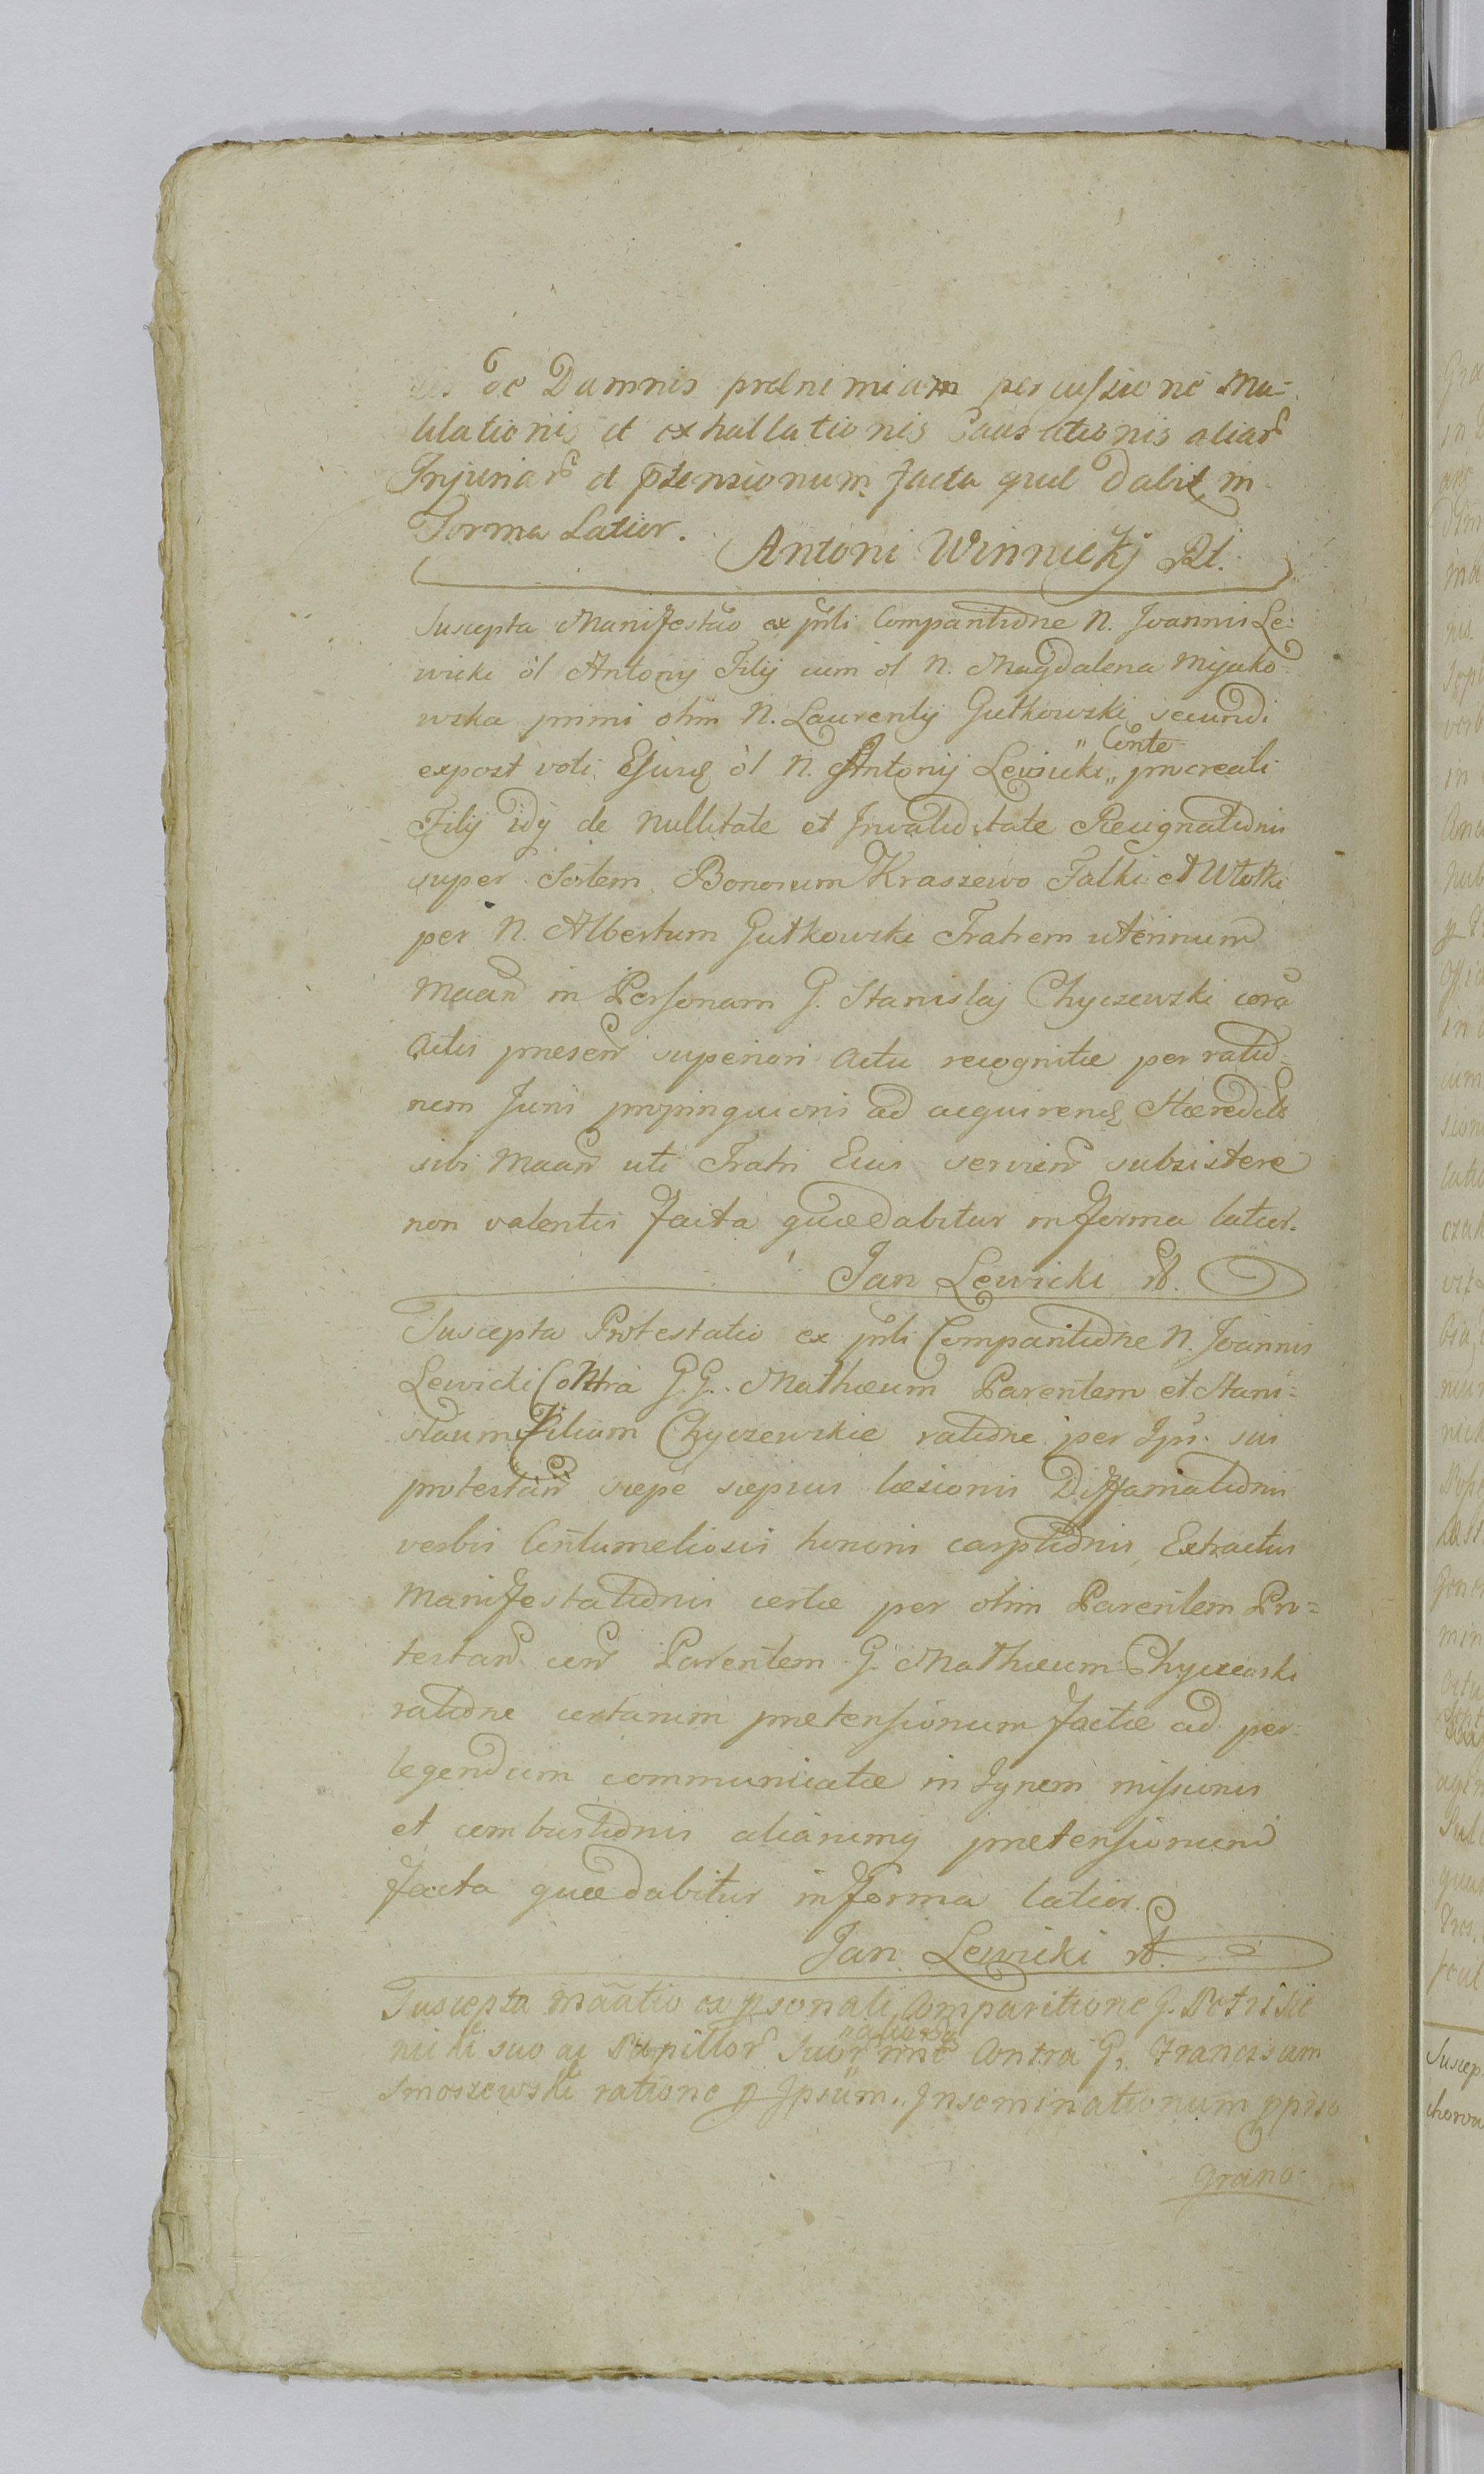 de Damnis prael nimiam percussione Mu-
tilationis et exhallationis Causationis aliar
Injuriar et ptensionum facta quae dabit in
Forma Latior.
Antoni Winnickj
Suscepta Manifestao ex prsli Comparitione N. Joannis Le=
wicki ol Antonij Filij cum ol N. Magdalena Mijako
wska primi olim N. Laurentij Gutkowski secundi
expost voti Ejusq ol N. Antonij Lewicki „ Conte procreati
Filij idq de Nullitate et Invaliditate Resignationis
super Sortem Bonorum Kraszewo Falki et Wtotki
per N. Albertum Gutkowski Fratrem uterinum
Maan in Personam G. Stanislaj Chyczewski cora
Actis praesen superiori Actu recognitae per ratio=
nem Juris propinquioris ad acquirend Haeredits
sibi Maan uti Fratri Eius servien subsistere
non valentis facta quae dabitur in forma latior.
Jan Lewicki
Suscepta Protestatio ex prsli Comparitione N. Joannis
Lewicki Contra G.G. Mathaeum Parentem et Stani=
slaum Filium Chyczewskie ratione per Ips sui
protestan saepe saepius laesionis Diffamationis
verbis Contumeliosis honoris carptionis Extractus
Manifestationis certae per olim Parentem Pro=
testan con Parentem G. Mathaeum Chyczewski
ratione certarum praetensionum factae ad per=
legendum communicatae in Ignem missionis
et combustionis aliarumq praetensionum
facta quae dabitur in forma latior.
Jan Lewicki
Suscepta maatio ex psonali Comparitione G. Petri Sie
nicki suo ac Pupillor Suor nne Contra G. Franciscum
Smoszewski ratione p Ipsum „ Inseminationum pprio
grano